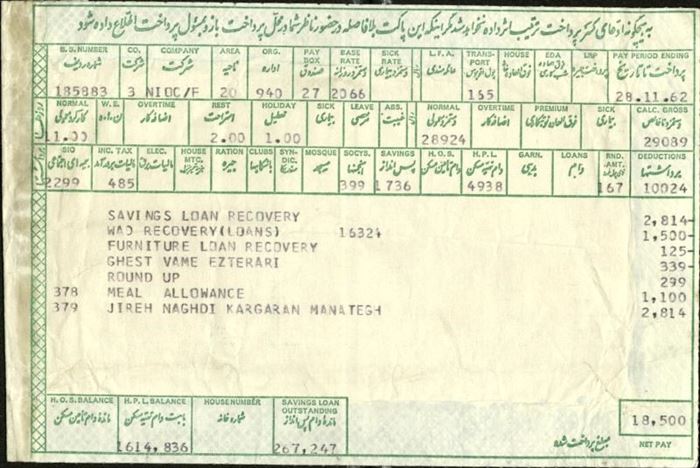 به هیچگونه ادعای کسر پرداخت ترتیب اثر داده نخواهد شد مگر اینکه این پاکت بلافاصله در حضور ناظر شما در محل پرداخت باز و بمسئول پرداخت اطلاع داده شود
B. S. NUMBER CO. COMPANY AREA ORG. PAY BOX BASE RATE SICK RATE L. F. A. TRANSPORT HOUSE EDA LRP PAY PERIOD ENDING
شماره ردیف شرکت شرکت ناحیه اداره صندوق پرداخت تا تاریخ
185883 3 NIOC/F 20 940 27 2066 165 28.11.62
NORMAL W. E. OVERTIME REST HOLIDAY SICK LEAVE ABS. NORMAL OVERTIME PREMIUM SICK CALC. GROSS
اضافه کار استراحت تعطیل بیماری غیبت اضافه کار بیماری
11.00 2.00 1.00 28924 29089
SIO INC. TAX ELEC. HOUSE MTG. RATION CLUBS SYN-DIC. MOSQUE SOCYS. SAVINGS H. O. S. H. P. L. GARN. LOANS RND. AMT. DEDUCTIONS
بیمه های اجتماعی مالیات بر درآمد مالیات برق جیره باشگاهها مسجد پس انداز بدهی وام برداشتها
2299 485 399 1736 4938 167 10024
SAVINGS LOAN RECOVERY 2,814-
WAD RECOVERY(LOANS) 16324 1,500-
FURNITURE LOAN RECOVERY 125-
GHEST VAME EZTERARI 339-
ROUND UP 299
378 MEAL ALLOWANCE 1,100
379 JIREH NAGHDI KARGARAN MANATEGH 2,814
H. O. S. BALANCE H. P. L. BALANCE HOUSE NUMBER SAVINGS LOAN OUTSTANDING 18,500
مانده وام تأمین مسکن شماره خانه مانده وام پس انداز مبلغ پرداخت شده NET PAY
1614,836 267,247